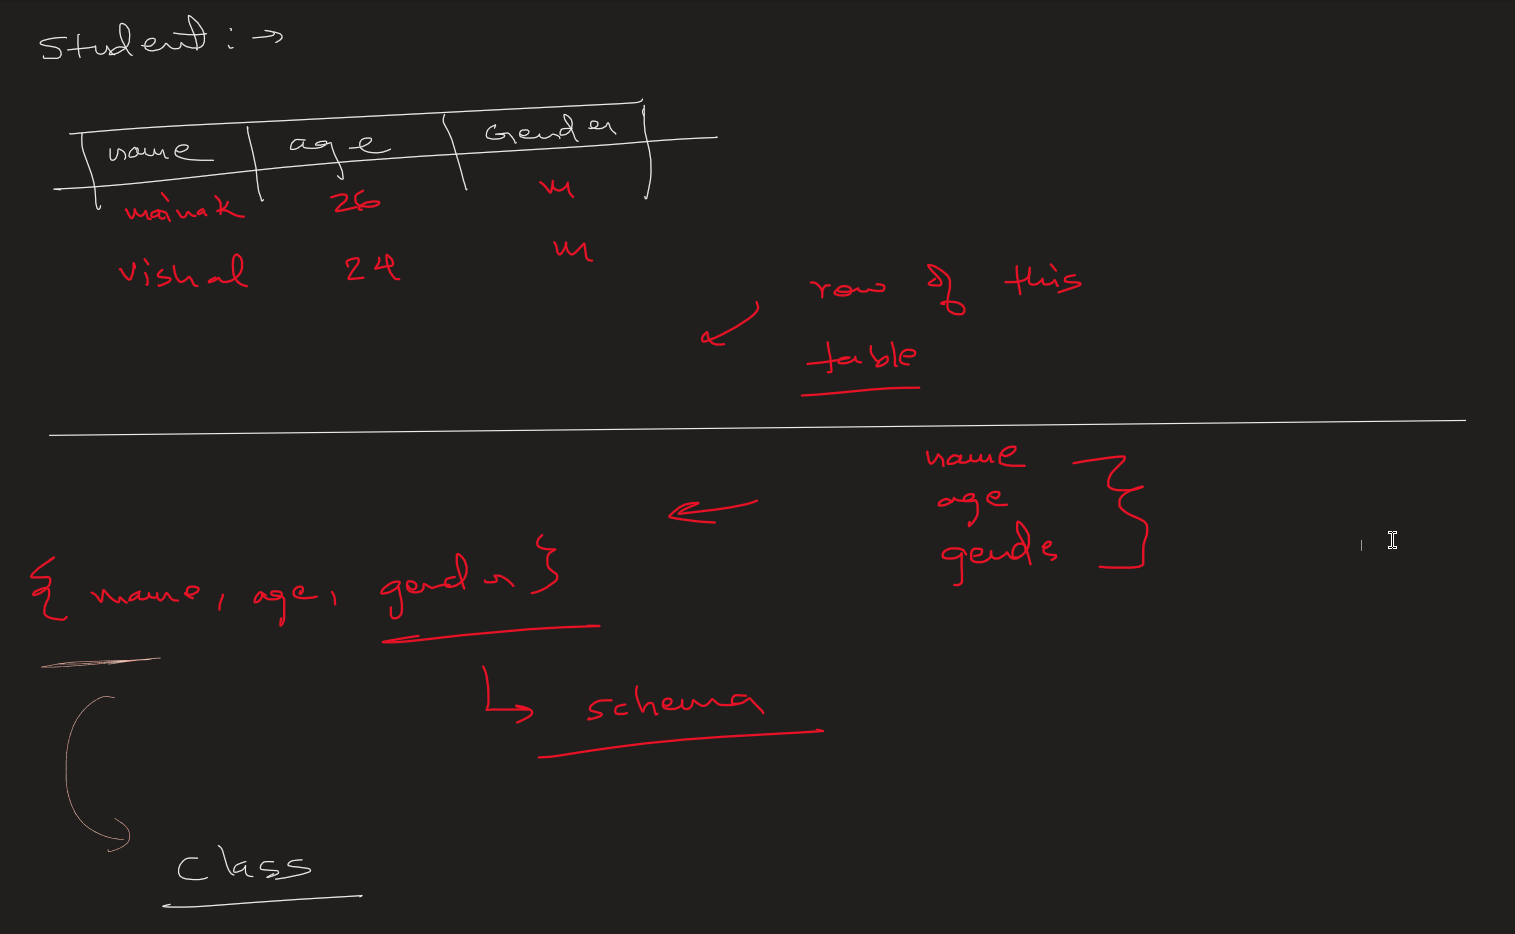 Student : →
name age Gender
mainak 26 M
vishal 24 M
row of this
table
name
age
gender
{ name, age, gender }
schema
class